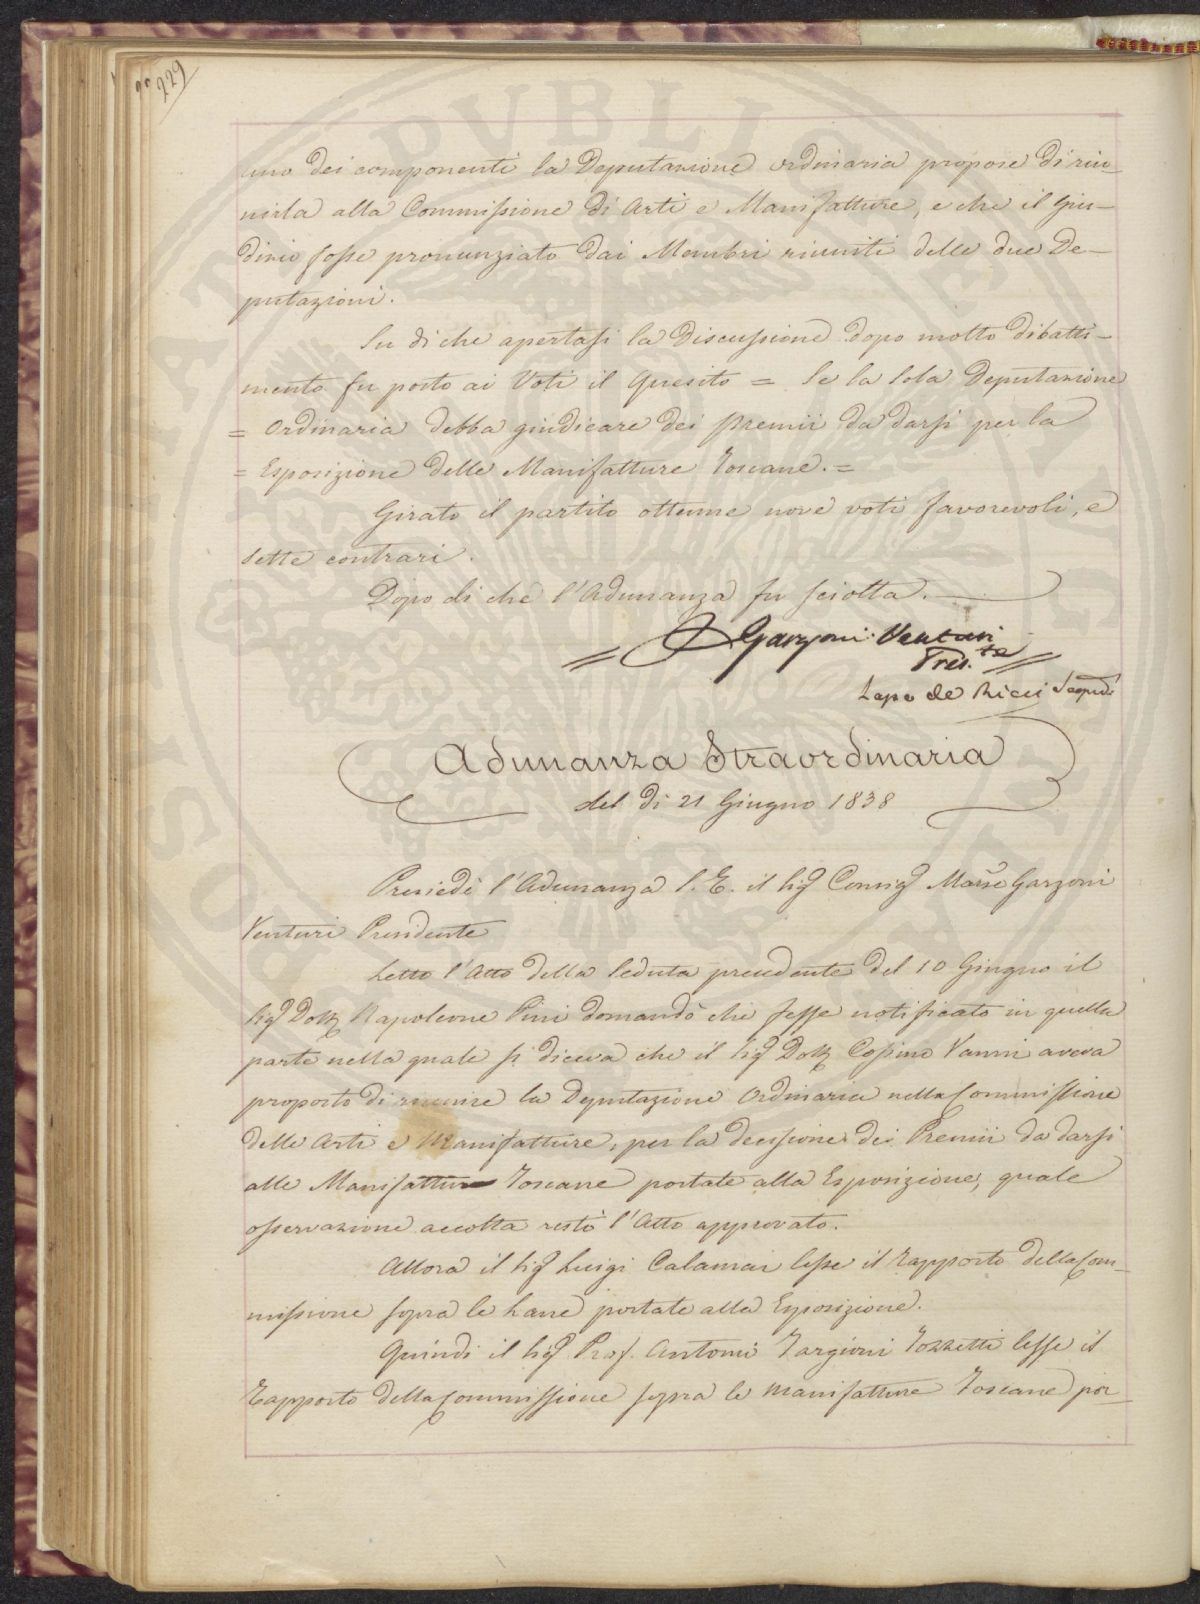 229
uno dei componenti la Deputazione ordinaria propose di riu-
nirla alla Commissione di Arti e Manifatture, e che il Giu-
dizio fosse pronunziato dai Membri riuniti delle due De-
putazioni.
Su di che apertasi la Discussione dopo molto dibatti-
mento fu posto ai Voti il Quesito = Se la sola Deputazione
= Ordinaria debba giudicare dei premii da darsi per la
= Esposizione delle Manifatture Toscane. =
Girato il partito ottenne nove voti favorevoli, e
sette contrari.
Dopo di che l'Adunanza fu sciolta.
Garzoni Venturi
Pres.te
Lapo de Ricci Segr.
Adunanza Straordinaria
del dì 21 Giugno 1838
Presiedè l'Adunanza S. E. il Sig Consig March Garzoni
Venturi Presidente
Letto l'Atto della Seduta precedente del 10 Giugno il
Sig Dott Napoleone Pini domandò che fosse notificato in quella
parte nella quale si diceva che il Sig Dott Cosimo Vanni aveva
proposto di riunire la Deputazione Ordinaria nella Commissione
delle Arti e Manifatture, per la decisione dei Premii da darsi
alle Manifatture Toscane portate alla Esposizione, quale
osservazione accolta restò l'Atto approvato.
Allora il Sig Luigi Calamai lesse il rapporto della Com-
missione sopra le Lane portate alla Esposizione.
Quindi il Sig Prof. Antonio Targioni Tozzetti lesse il
Rapporto della Commissione sopra le manifatture Toscane por-